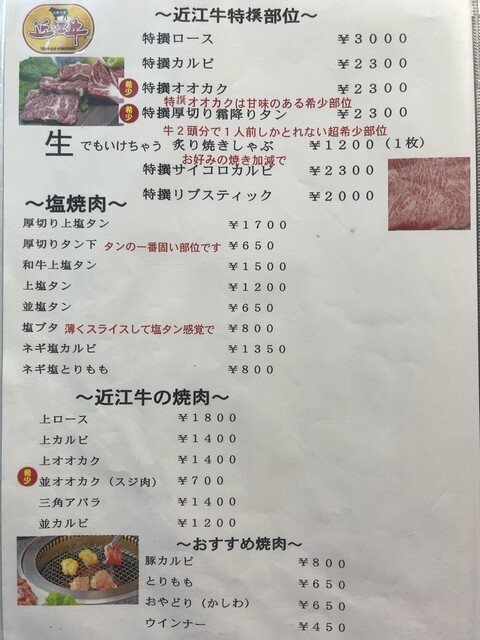 近江牛
～近江牛特撰部位～
特撰ロース ￥３０００
特撰カルビ ￥２３００
希少 特撰オオカク ￥２３００
特撰オオカクは甘味のある希少部位
希少 特撰厚切り霜降りタン ￥２３００
牛２頭分で１人前しかとれない超希少部位
生 でもいけちゃう 炙り焼きしゃぶ ￥１２００（１枚）
お好みの焼き加減で
特撰サイコロカルビ ￥２３００
特撰リブスティック ￥２０００
～塩焼肉～
厚切り上塩タン ￥１７００
厚切りタン下 タンの一番固い部位です ￥６５０
和牛上塩タン ￥１５００
上塩タン ￥１２００
並塩タン ￥６５０
塩ブタ 薄くスライスして塩タン感覚で ￥８００
ネギ塩カルビ ￥１３５０
ネギ塩とりもも ￥８００
～近江牛の焼肉～
上ロース ￥１８００
上カルビ ￥１４００
上オオカク ￥１４００
希少 並オオカク（スジ肉） ￥７００
三角アバラ ￥１４００
並カルビ ￥１２００
～おすすめ焼肉～
豚カルビ ￥８００
とりもも ￥６５０
おやどり（かしわ） ￥６５０
ウインナー ￥４５０